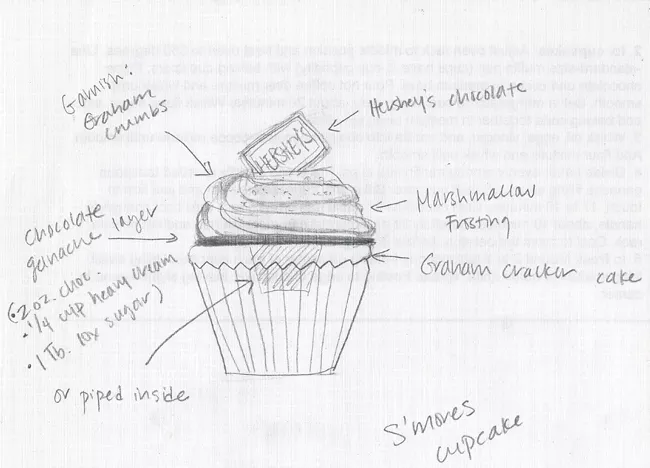 Garnish:
Graham
crumbs
Hershey's chocolate
HERSHEY'S
Marshmallow
Frosting
chocolate
ganache layer
(· 2 oz. choc
· 1/4 cup heavy cream
· 1 Tb. 10x sugar)
Graham cracker cake
or piped inside
S'mores
cupcake